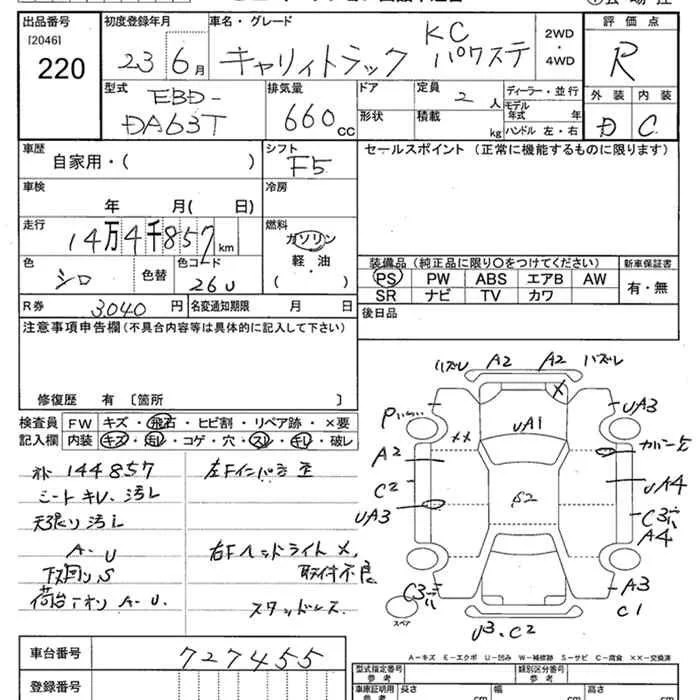 出品番号
[2046]
220
初度登録年月
23 6月
車名・グレード
キャリィトラック
KC
パワステ
2WD
・
4WD
評価点
R
外装 内装
D C
型式
EBD-
DA63T
排気量
660 cc
ドア
形状
定員
2 人
積載
kg
ディーラー・並行
モデル
年式 年
ハンドル 左・右
車歴
自家用・( )
シフト
F5
セールスポイント (正常に機能するものに限ります)
車検
年 月( 日)
冷房
走行
14万4千857km
燃料
ガソリン
軽・油
( )
色
シロ
色替
色コード
26U
装備品 (純正品に限り○をつけてください)
PS PW ABS エアB AW
SR ナビ TV カワ
新車保証書
有・無
R券 3040 円
名変通知期限 月 日
後日品
注意事項申告欄 (不具合内容等は具体的に記入して下さい)
修復歴 有 〔箇所 〕
検査員
記入欄
FW キズ・飛石・ヒビ割・リペア跡・×要
内装 キズ・モレ・コゲ・穴・スレ・キレ・破レ
メーター 144857
シートキレ、汚レ
天張り汚レ
A-U
下回りS
荷台アオリ A-U.
左Fインパネ歪
右Fヘッドライト×、
取付不良
スタッドレス
ハズレ A2 A2 ハズレ
X
UA3
UA1
××
A2
C2
UA3
S2
UA4
C3
A4
C3
A3
C1
スペア
U3-C2
A-キズ E-エクボ U-凹み W-補修跡 S-サビ C-腐食 XX-交換済
車台番号
727455
登録番号
型式指定番号
参考
類別区分番号
参考
車庫証明用
参考
長さ cm
幅 cm
高さ cm